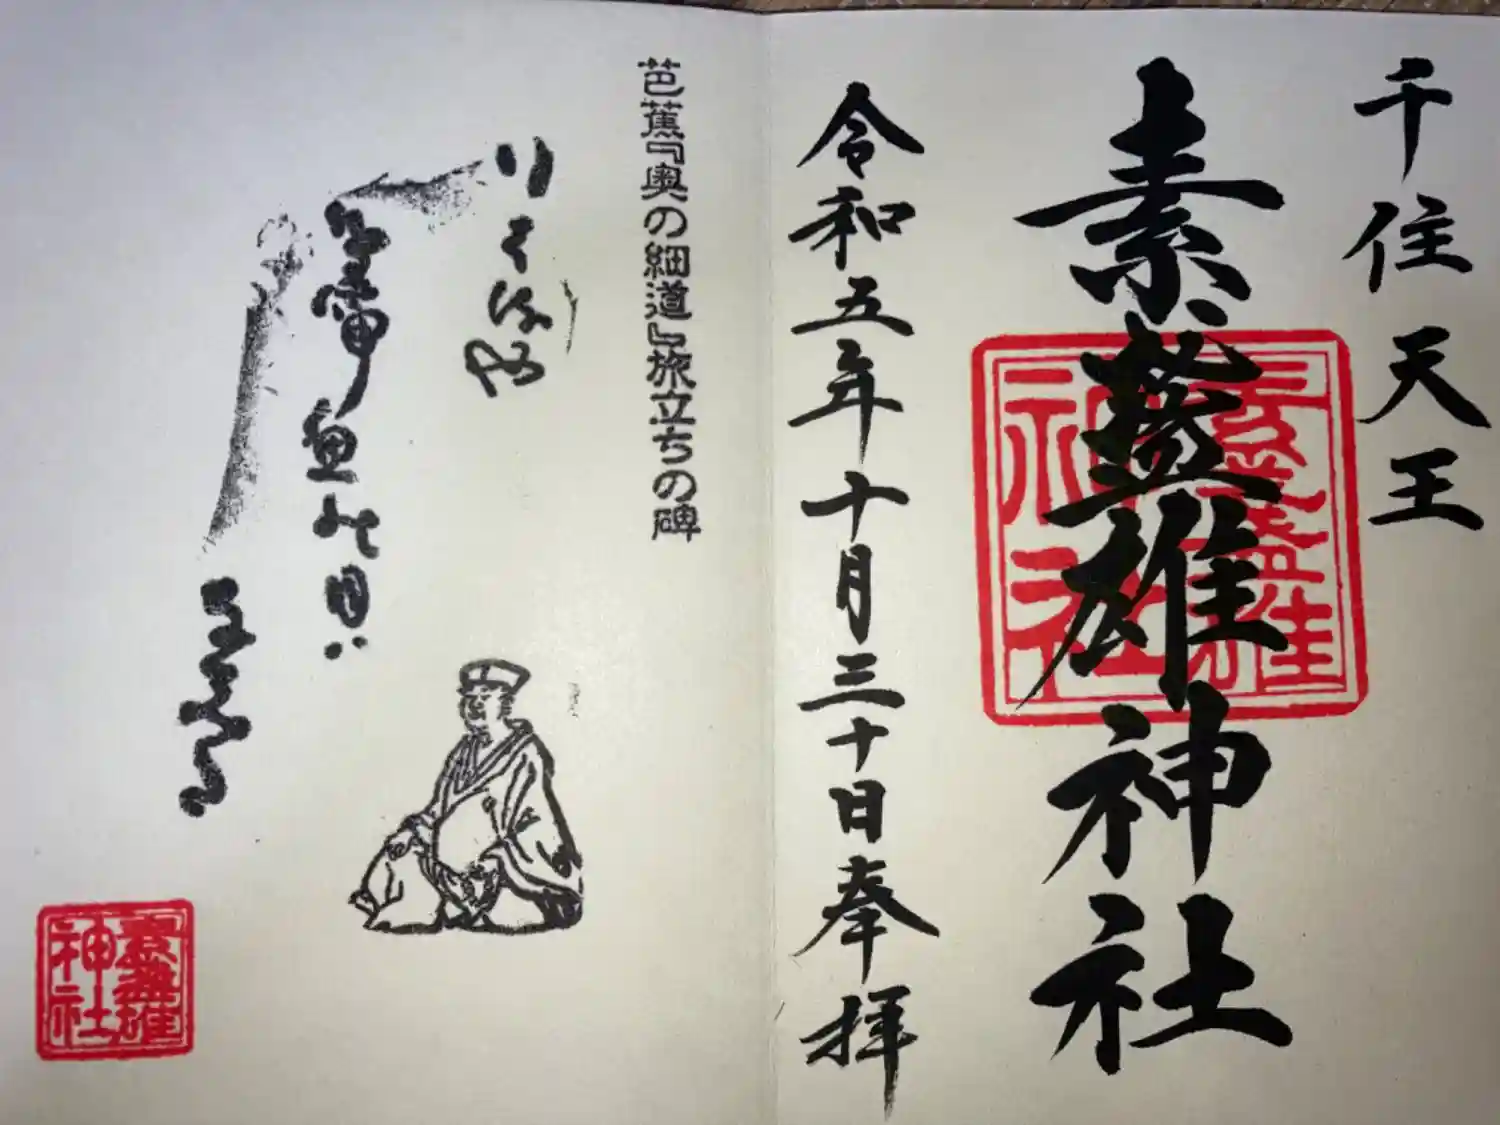 千住天王
素盞雄神社
素盞雄神社
令和五年十月三十日奉拝
芭蕉『奥の細道』旅立ちの碑
鳥啼魚の目ハ
素盞雄神社